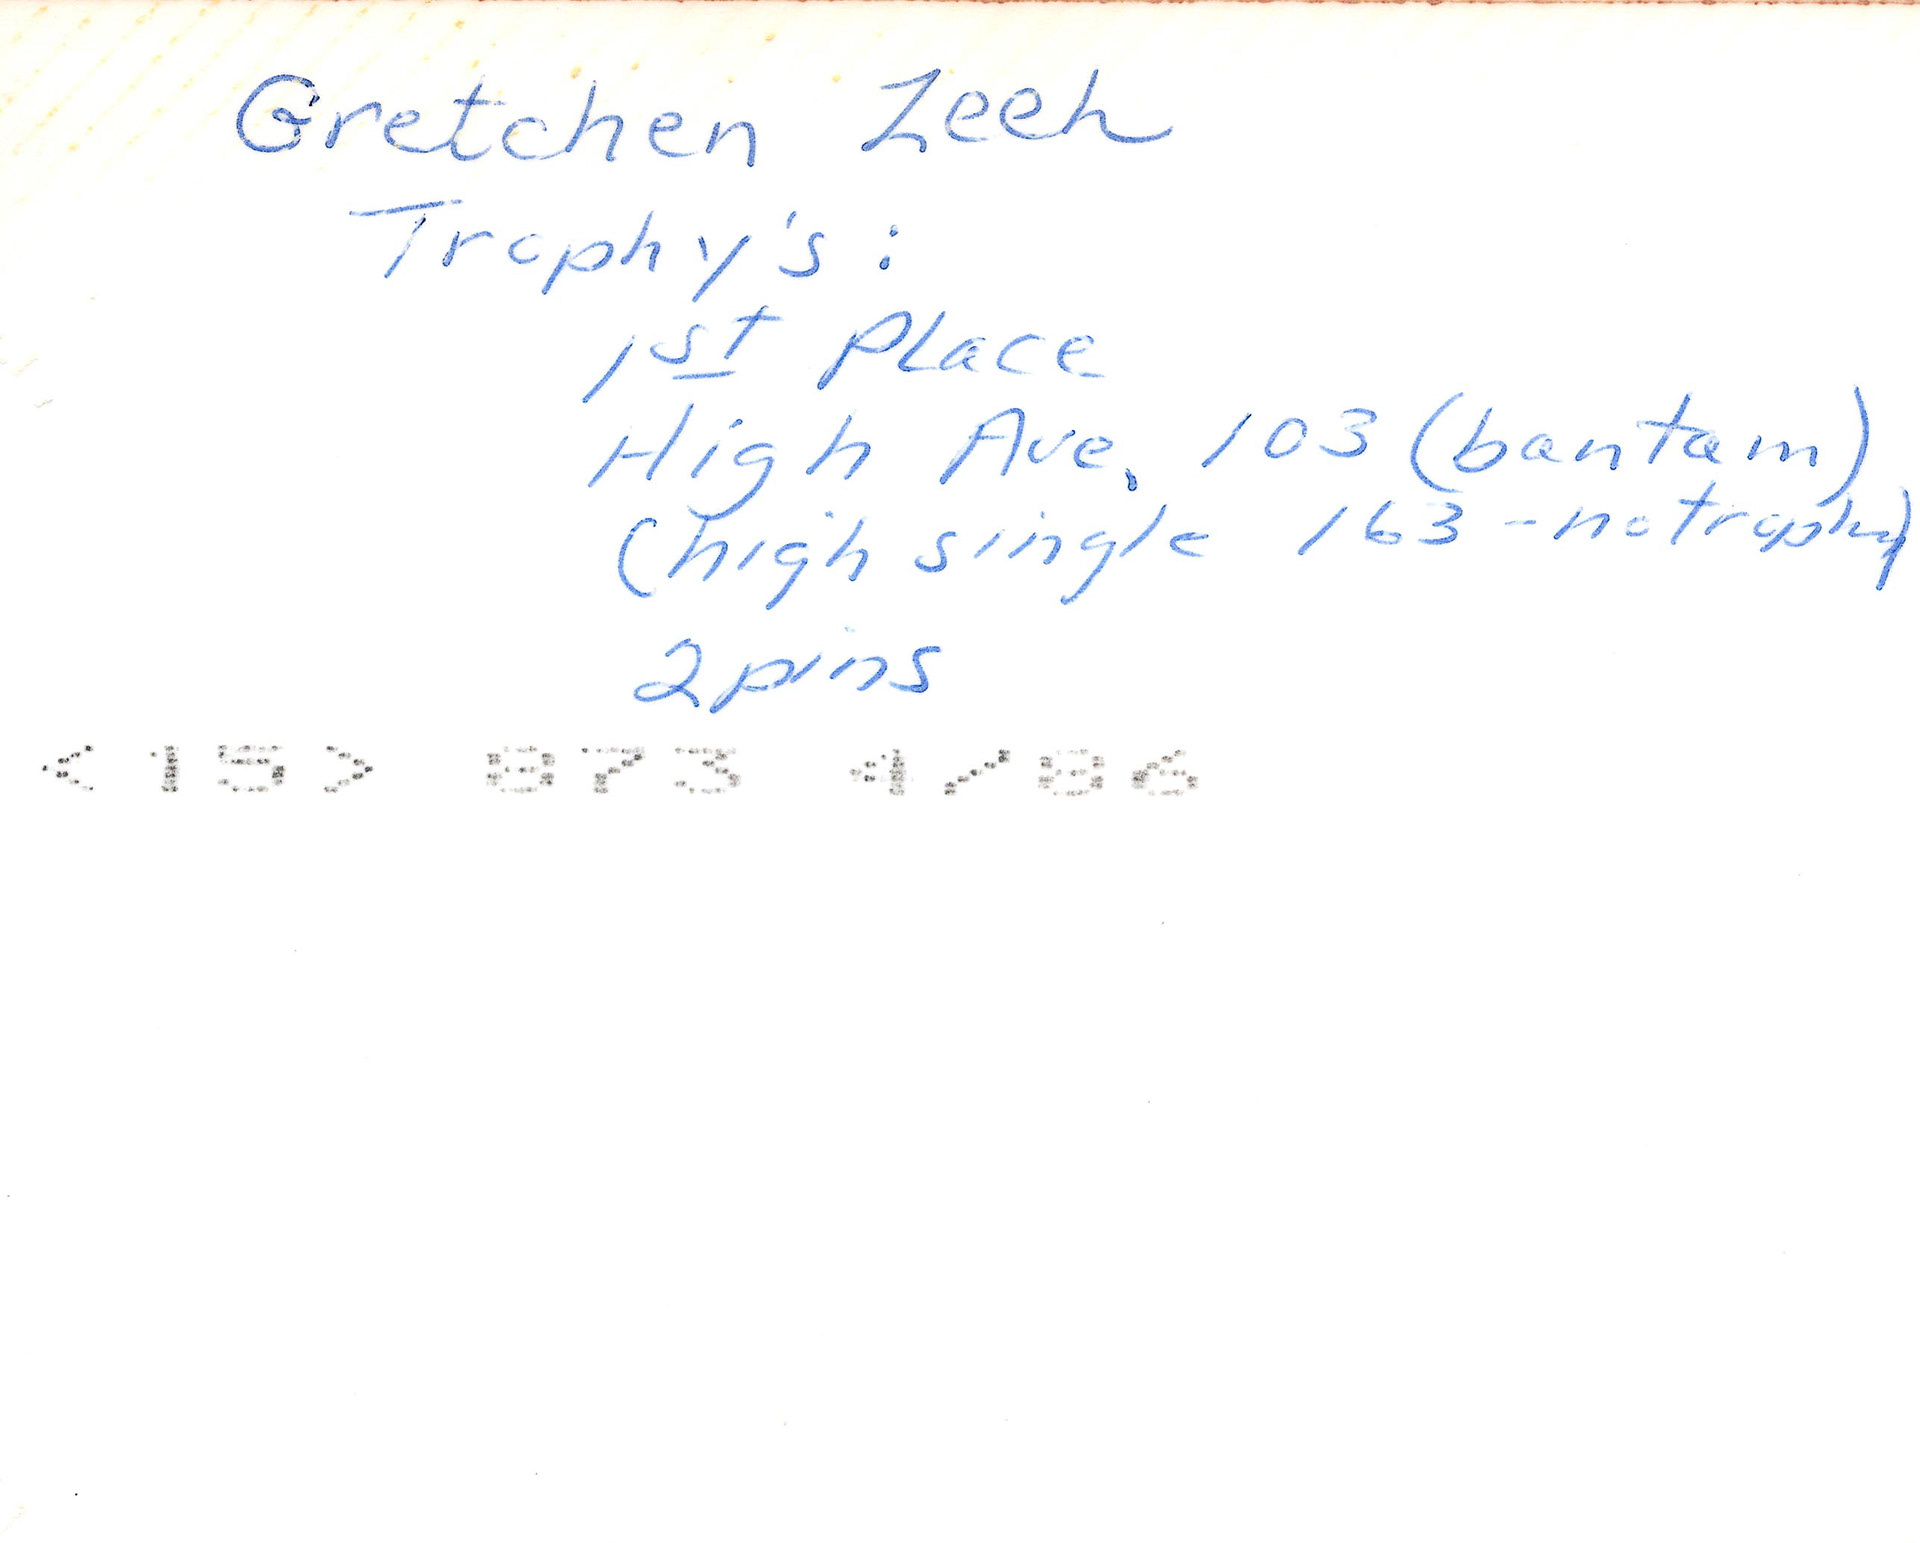 Gretchen Zeeh
Trophy's:
1st Place
High Ave. 103 (bantam)
(high single 163 - no trophy)
2 pins
<15> 073 4/86